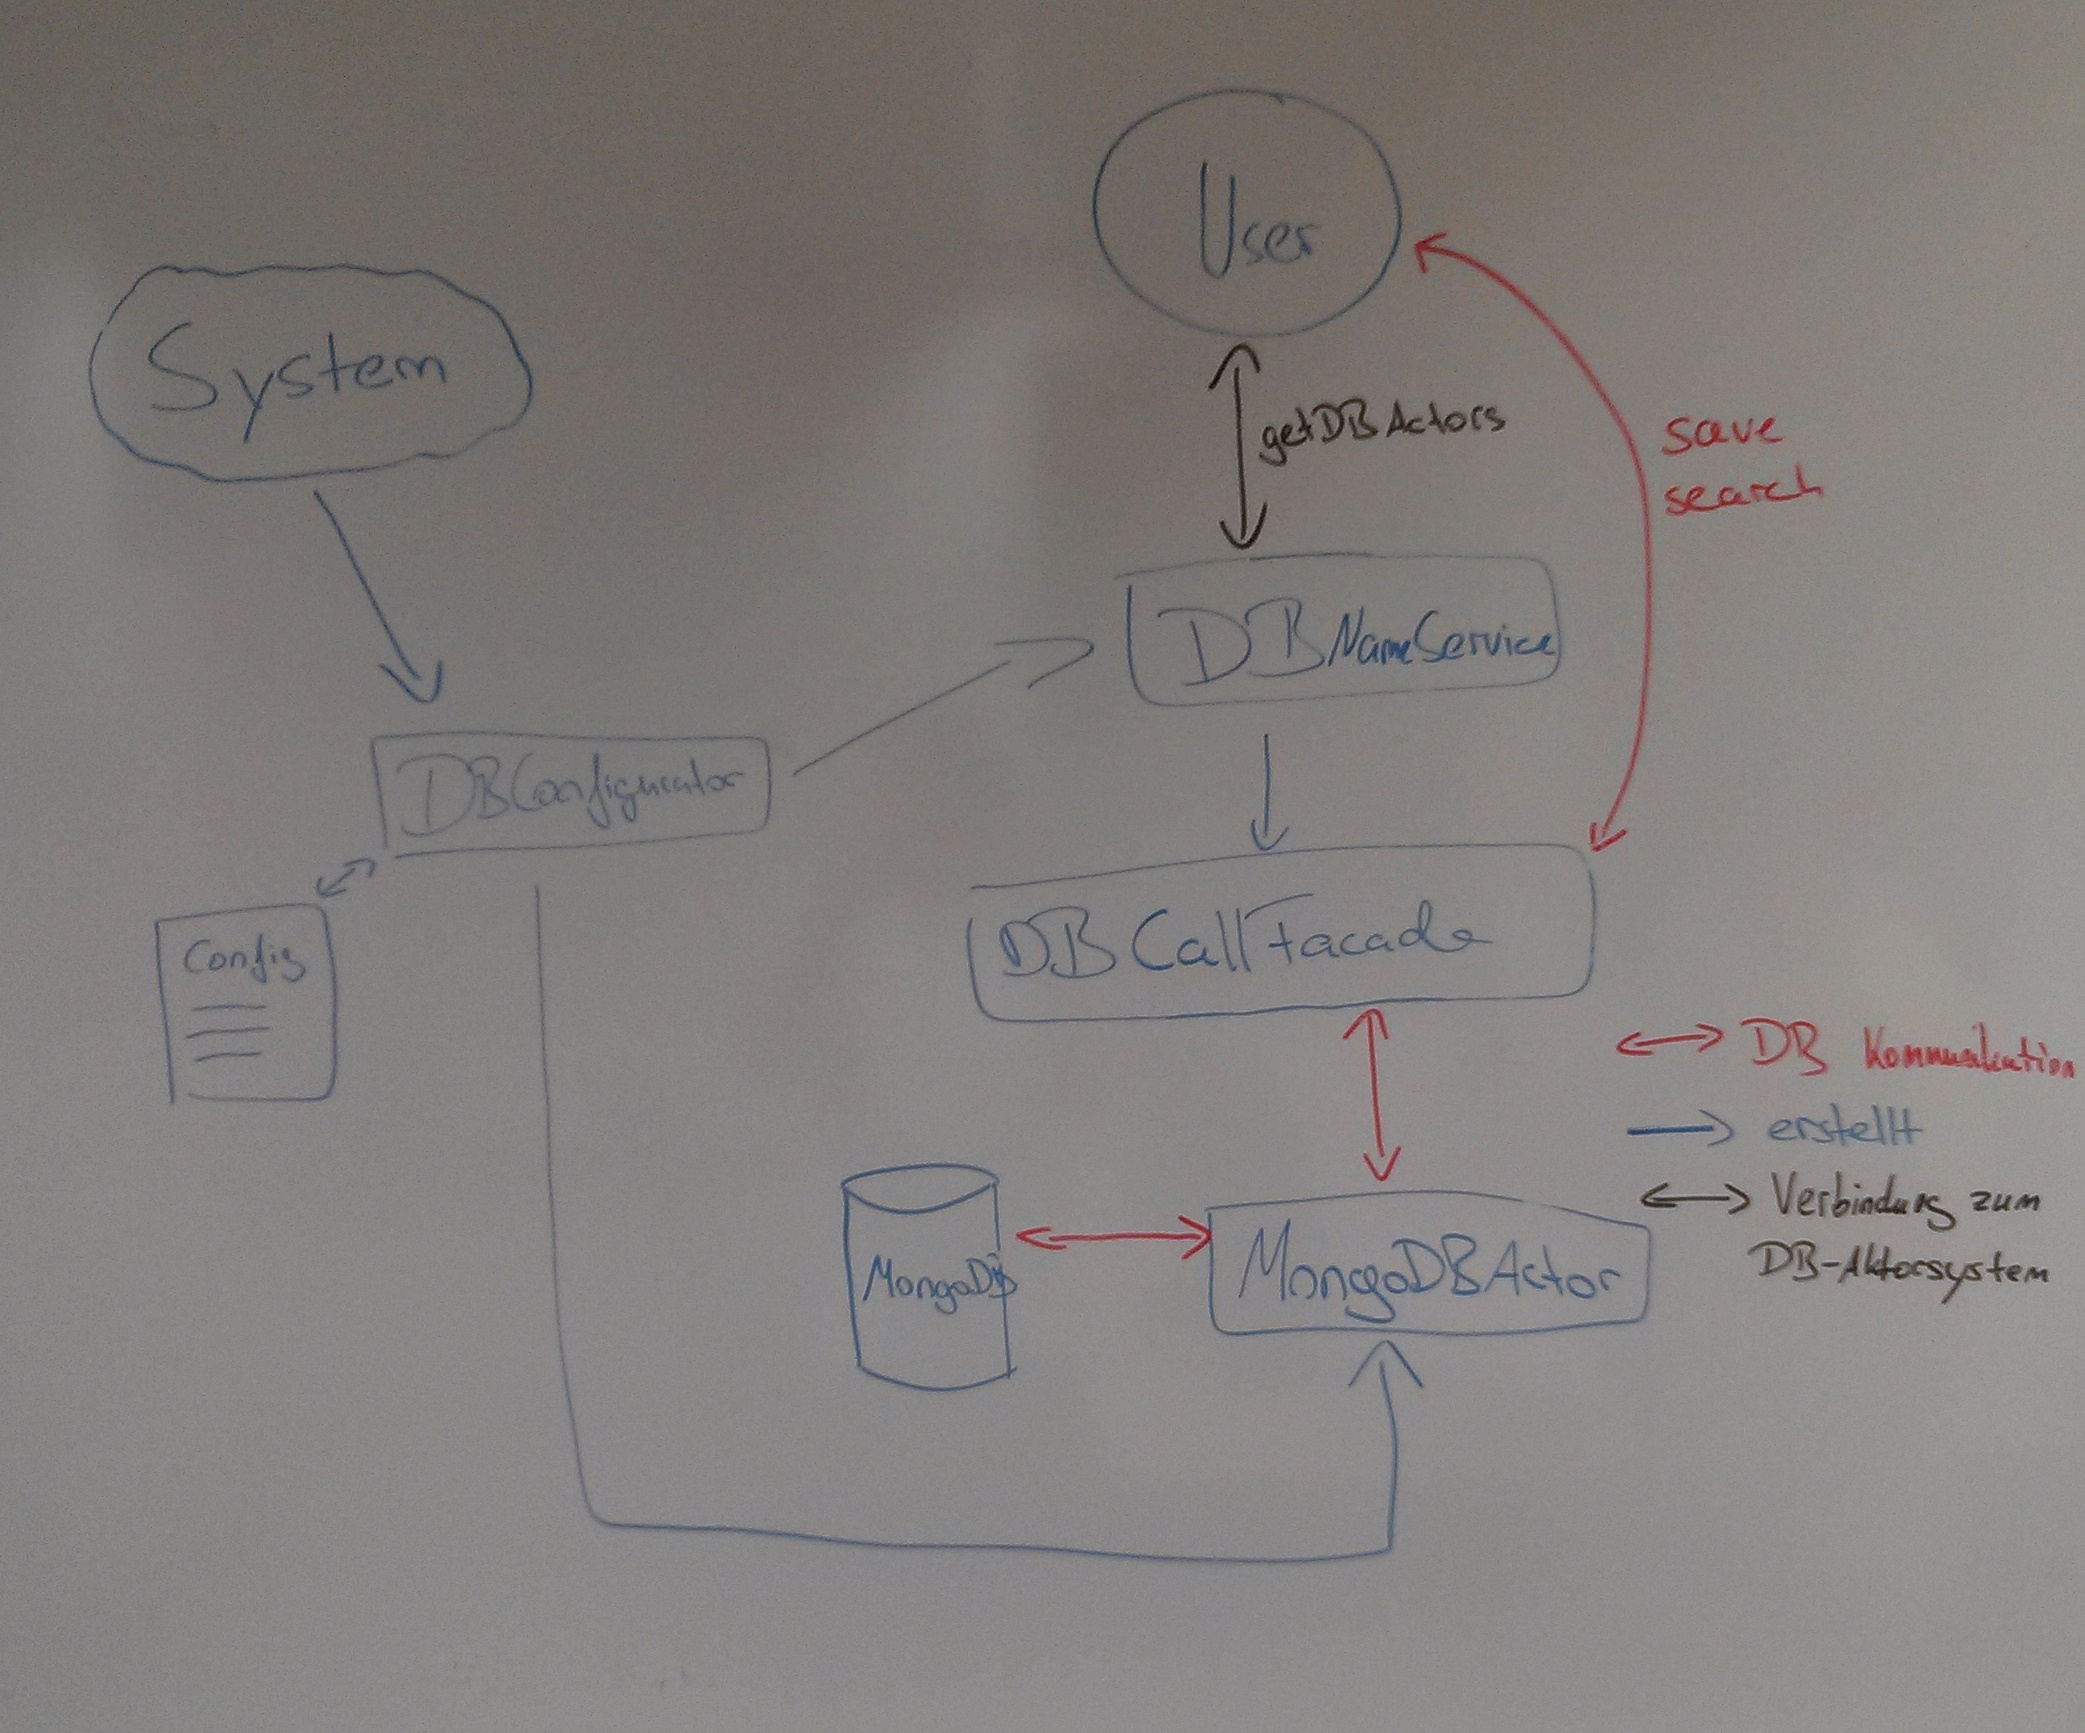 User
System
getDBActors
save
search
DBNameService
DBConfigurator
DBCallFacade
Config
DB Kommunikation
erstellt
Verbindung zum
DB-Aktorsystem
MongoDB
MongoDBActor